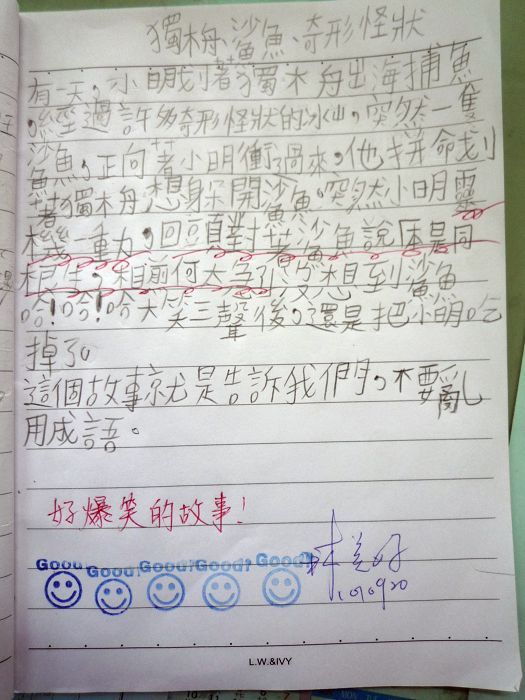 獨木舟、鯊魚、奇形怪狀
有一天,小明划著獨木舟出海捕魚
,經過許多奇形怪狀的冰山,突然一隻
鯊魚,正向著小明衝過來,他拼命划
著獨木舟想躲開鯊魚。突然小明靈
機一動,回頭對著鯊魚說:本是同
根生,相煎何太急?沒想到鯊魚
哈!哈!哈大笑三聲後,還是把小明吃
掉了。
這個故事就是告訴我們,不要亂
用成語。
好爆笑的故事!
Good! Good! Good! Good! Good!
1010920
L.W.&IVY